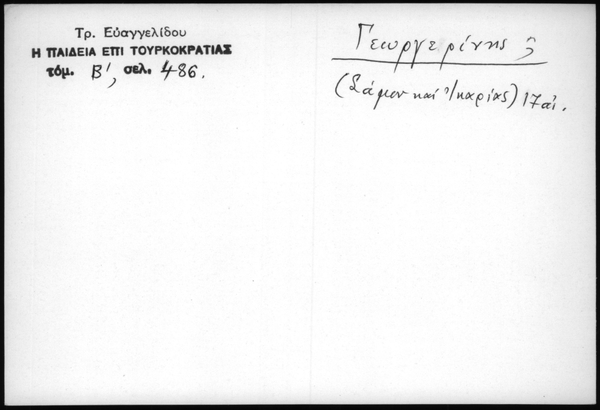 Τρ. Εὐαγγελίδου
Η ΠΑΙΔΕΙΑ ΕΠΙ ΤΟΥΡΚΟΚΡΑΤΙΑΣ
τόμ. Β', σελ. 486.
Γεωργερίνης
(Σάμου καὶ Ἰκαρίας) 17 αἰ.